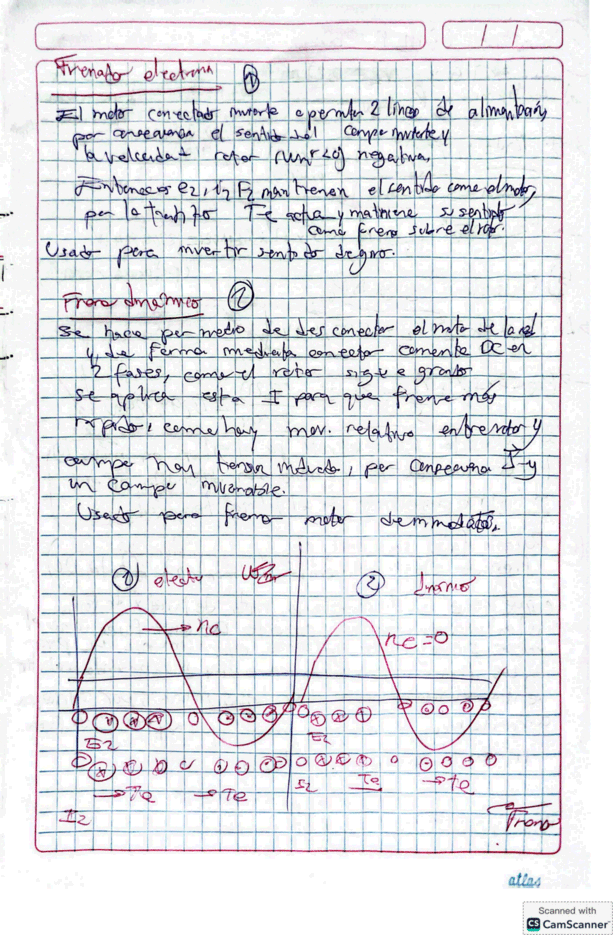 / /
Frenado electrico ①
El motor conectado invierte o permuta 2 lineas de alimentación,
por consecuencia el sentido del campo invierte y
la velocidad rotor negativa,
Entonces e2, i2 F2 mantienen el sentido como el motor,
por lo tanto Te actua y mantiene su sentido
como freno sobre el rotor.
Usado para invertir sentido de giro.
Freno dinamico ②
se hace por medio de desconectar el motor de la red
y de forma inmediata conectar corriente DC en
2 fases, como el rotor sigue girando
se aplica esta I para que frene más
rapido, como hay mov. relativo entre rotor y
campo hay tension inducida, por consecuencia I y
un campo invariable.
Usado para frenar motor de inmediato.
① electri
② dinamico
nc
nc = 0
E2
E2
I2
Te
Te
Te
Te
I2
Freno
atlas
Scanned with
CS CamScanner